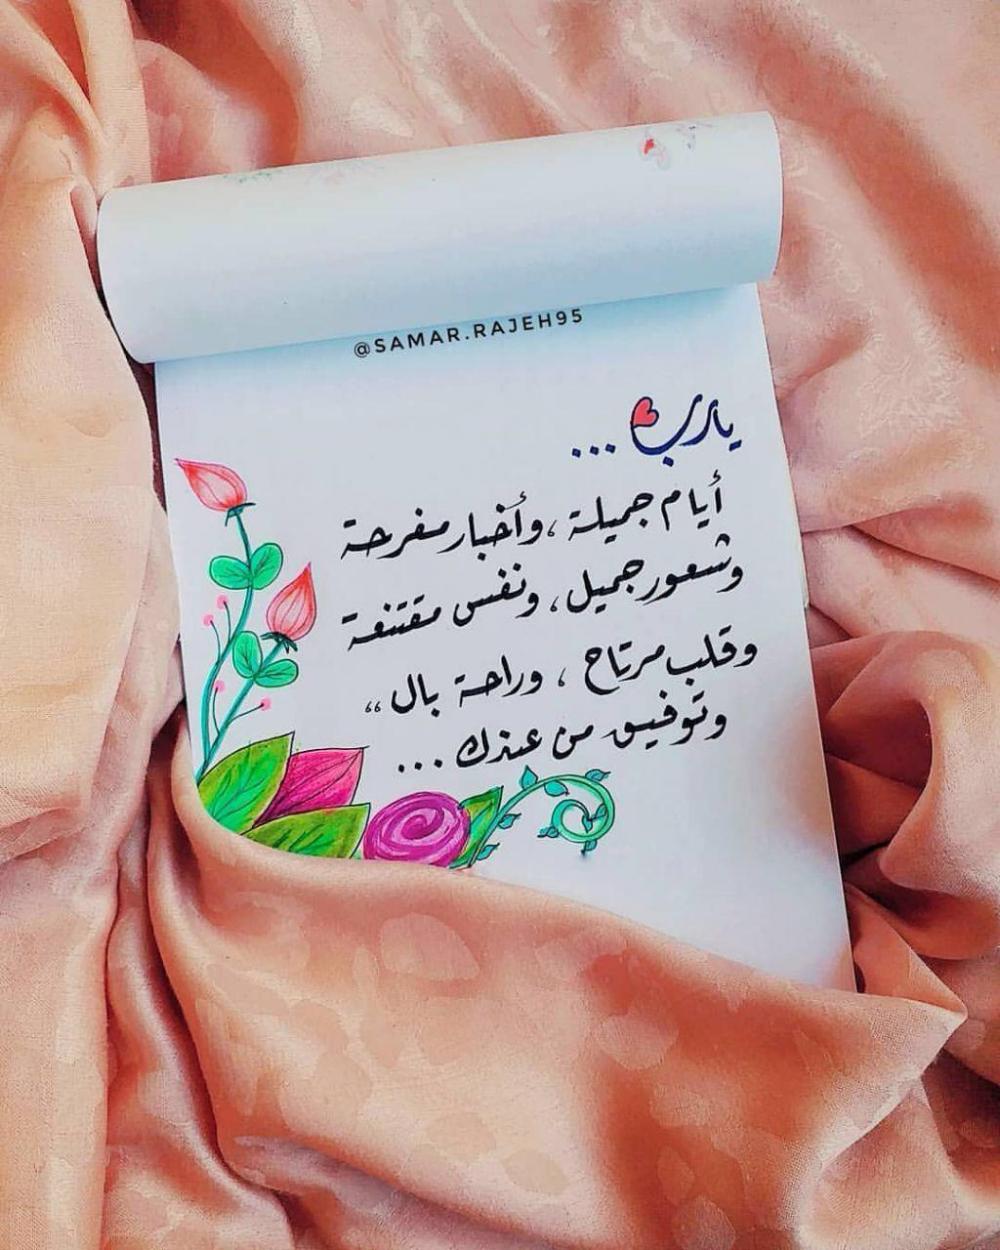 @SAMAR.RAJEH95
يارب ...
أيام جميلة ،وأخبار مفرحة
وشعور جميل ، ونفس مقتنعة
وقلب مرتاح ، وراحة بال ،،
وتوفيق من عندك ...